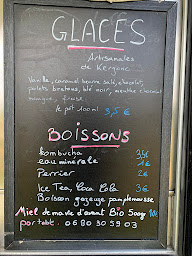 GLACES
Artisanales
de Kergonc
Vanille, caramel beurre salé, chocolat,
palets bretons, blé noir, menthe chocolat
mangue, fraise
le pot 100ml 3,5 €
BOISSONS
kombucha 3,5€
eau minérale 1€
Perrier 2€
Ice Tea, Coca Cola 3€
Boisson gazeuse pamplemousse
Miel de ma vie d'avant Bio 500g 10€
portable: 06 80 30 59 03